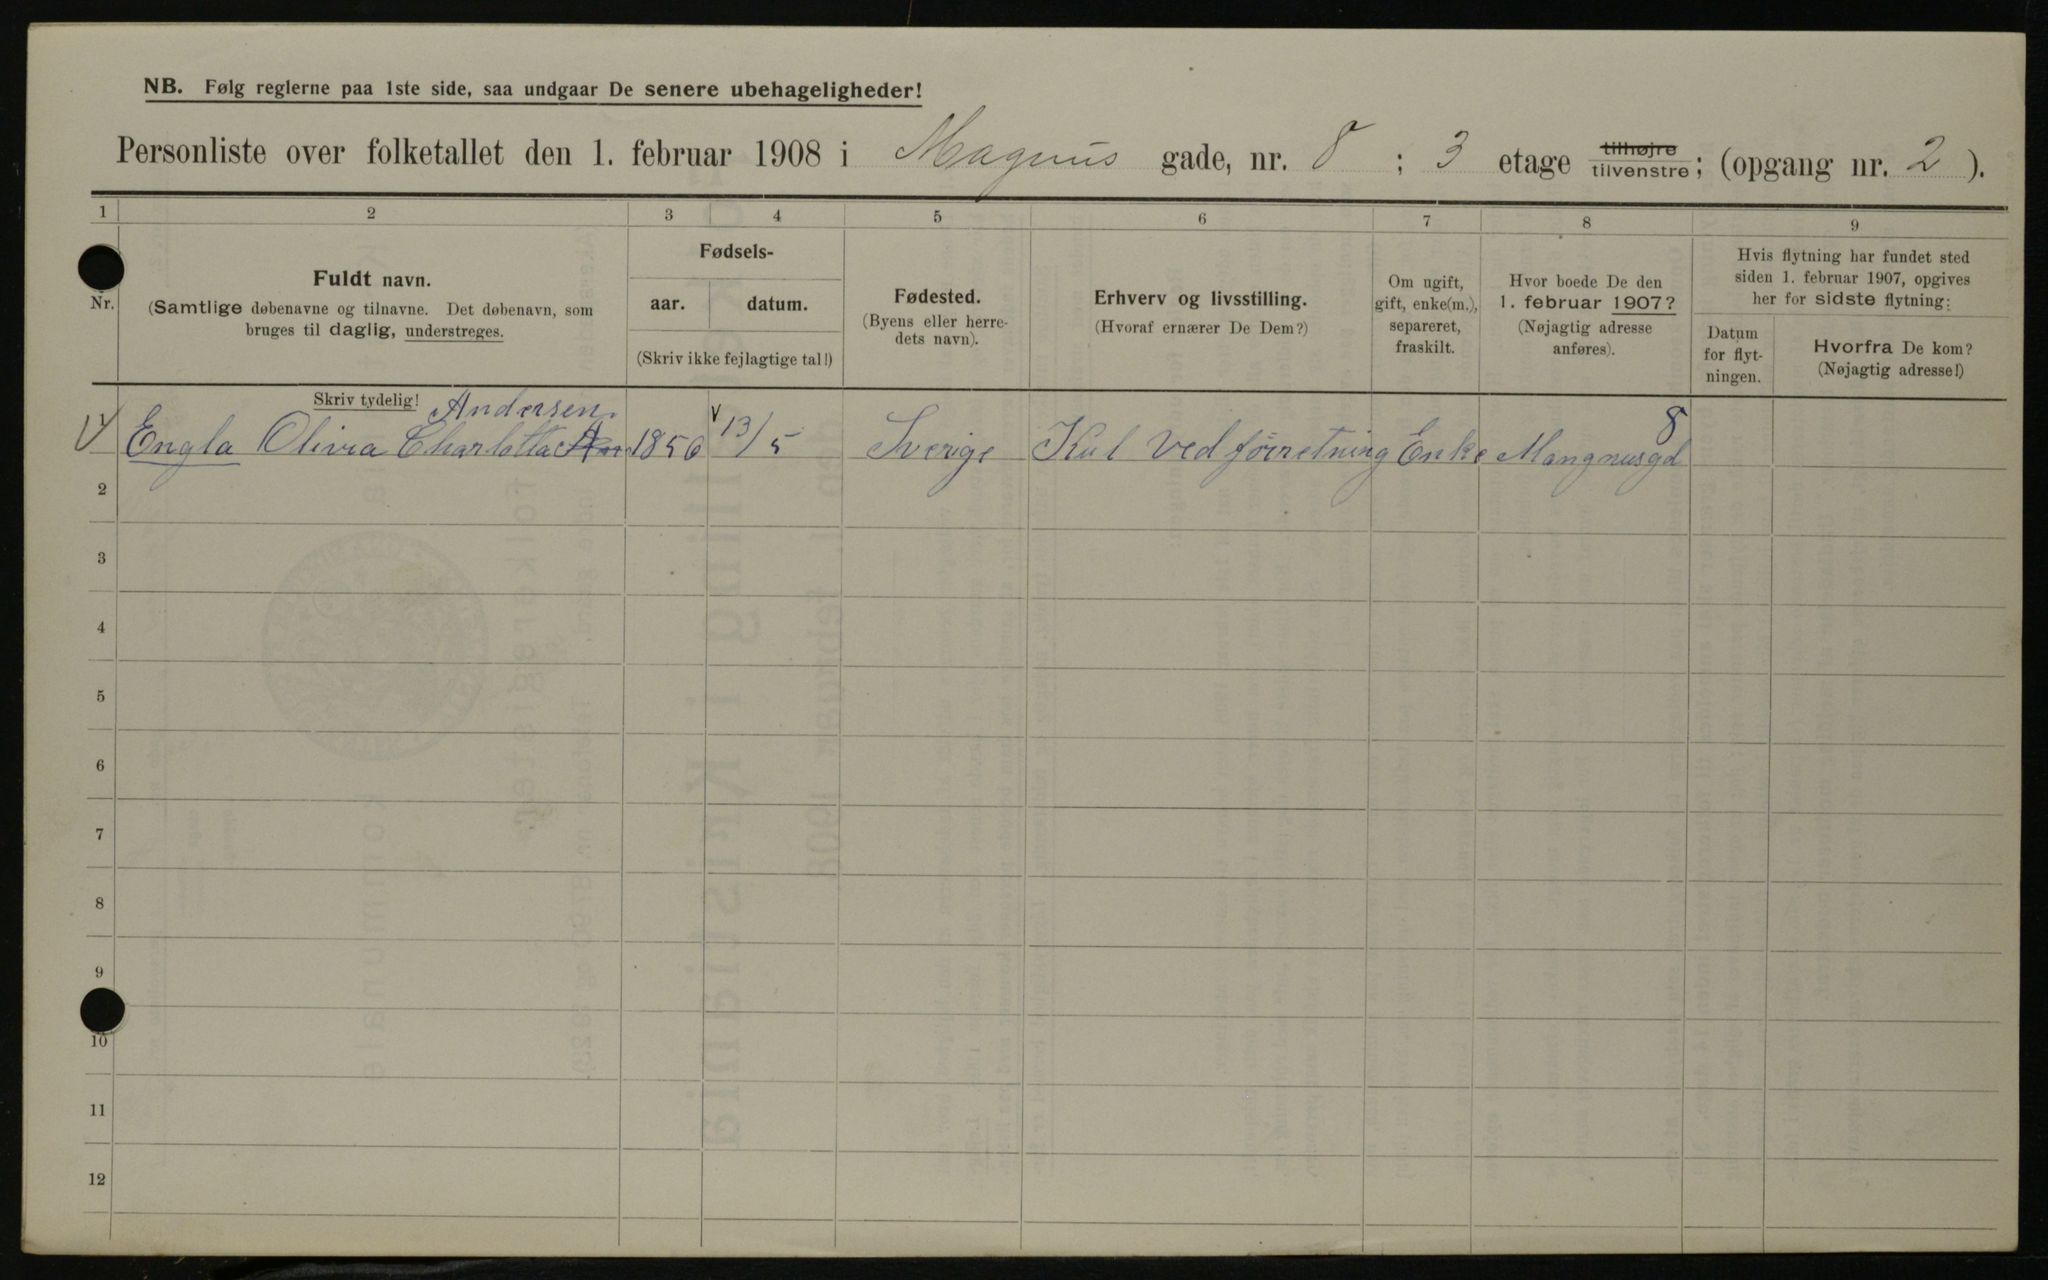 NB. Følg reglerne paa 1ste side, saa undgaar De senere ubehageligheder!
Personliste over folketallet den 1. februar 1908 i Magnus gade, nr. 8 ; 3 etage tilhøjre tilvenstre; (opgang nr. 2 ).
1 2 3 4 5 6 7 8 9
Nr.
Fuldt navn.
(Samtlige døbenavne og tilnavne. Det døbenavn, som
bruges til daglig, understreges.
Fødsels-
aar. datum.
(Skriv ikke fejlagtige tal!)
Fødested.
(Byens eller herre-
dets navn).
Erhverv og livsstilling.
(Hvoraf ernærer De Dem?)
Om ugift,
gift, enke(m.),
separeret,
fraskilt.
Hvor boede De den
1. februar 1907?
(Nøjagtig adresse
anføres).
Hvis flytning har fundet sted
siden 1. februar 1907, opgives
her for sidste flytning:
Datum
for flyt-
ningen.
Hvorfra De kom?
(Nøjagtig adresse!)
Skriv tydelig!
Andersen 8
1 Engla Olivia Charlotta An 1856 13/5 Sverige Kul Ved forretning Enke Mangnusgd
2
3
4
5
6
7
8
9
10
11
12